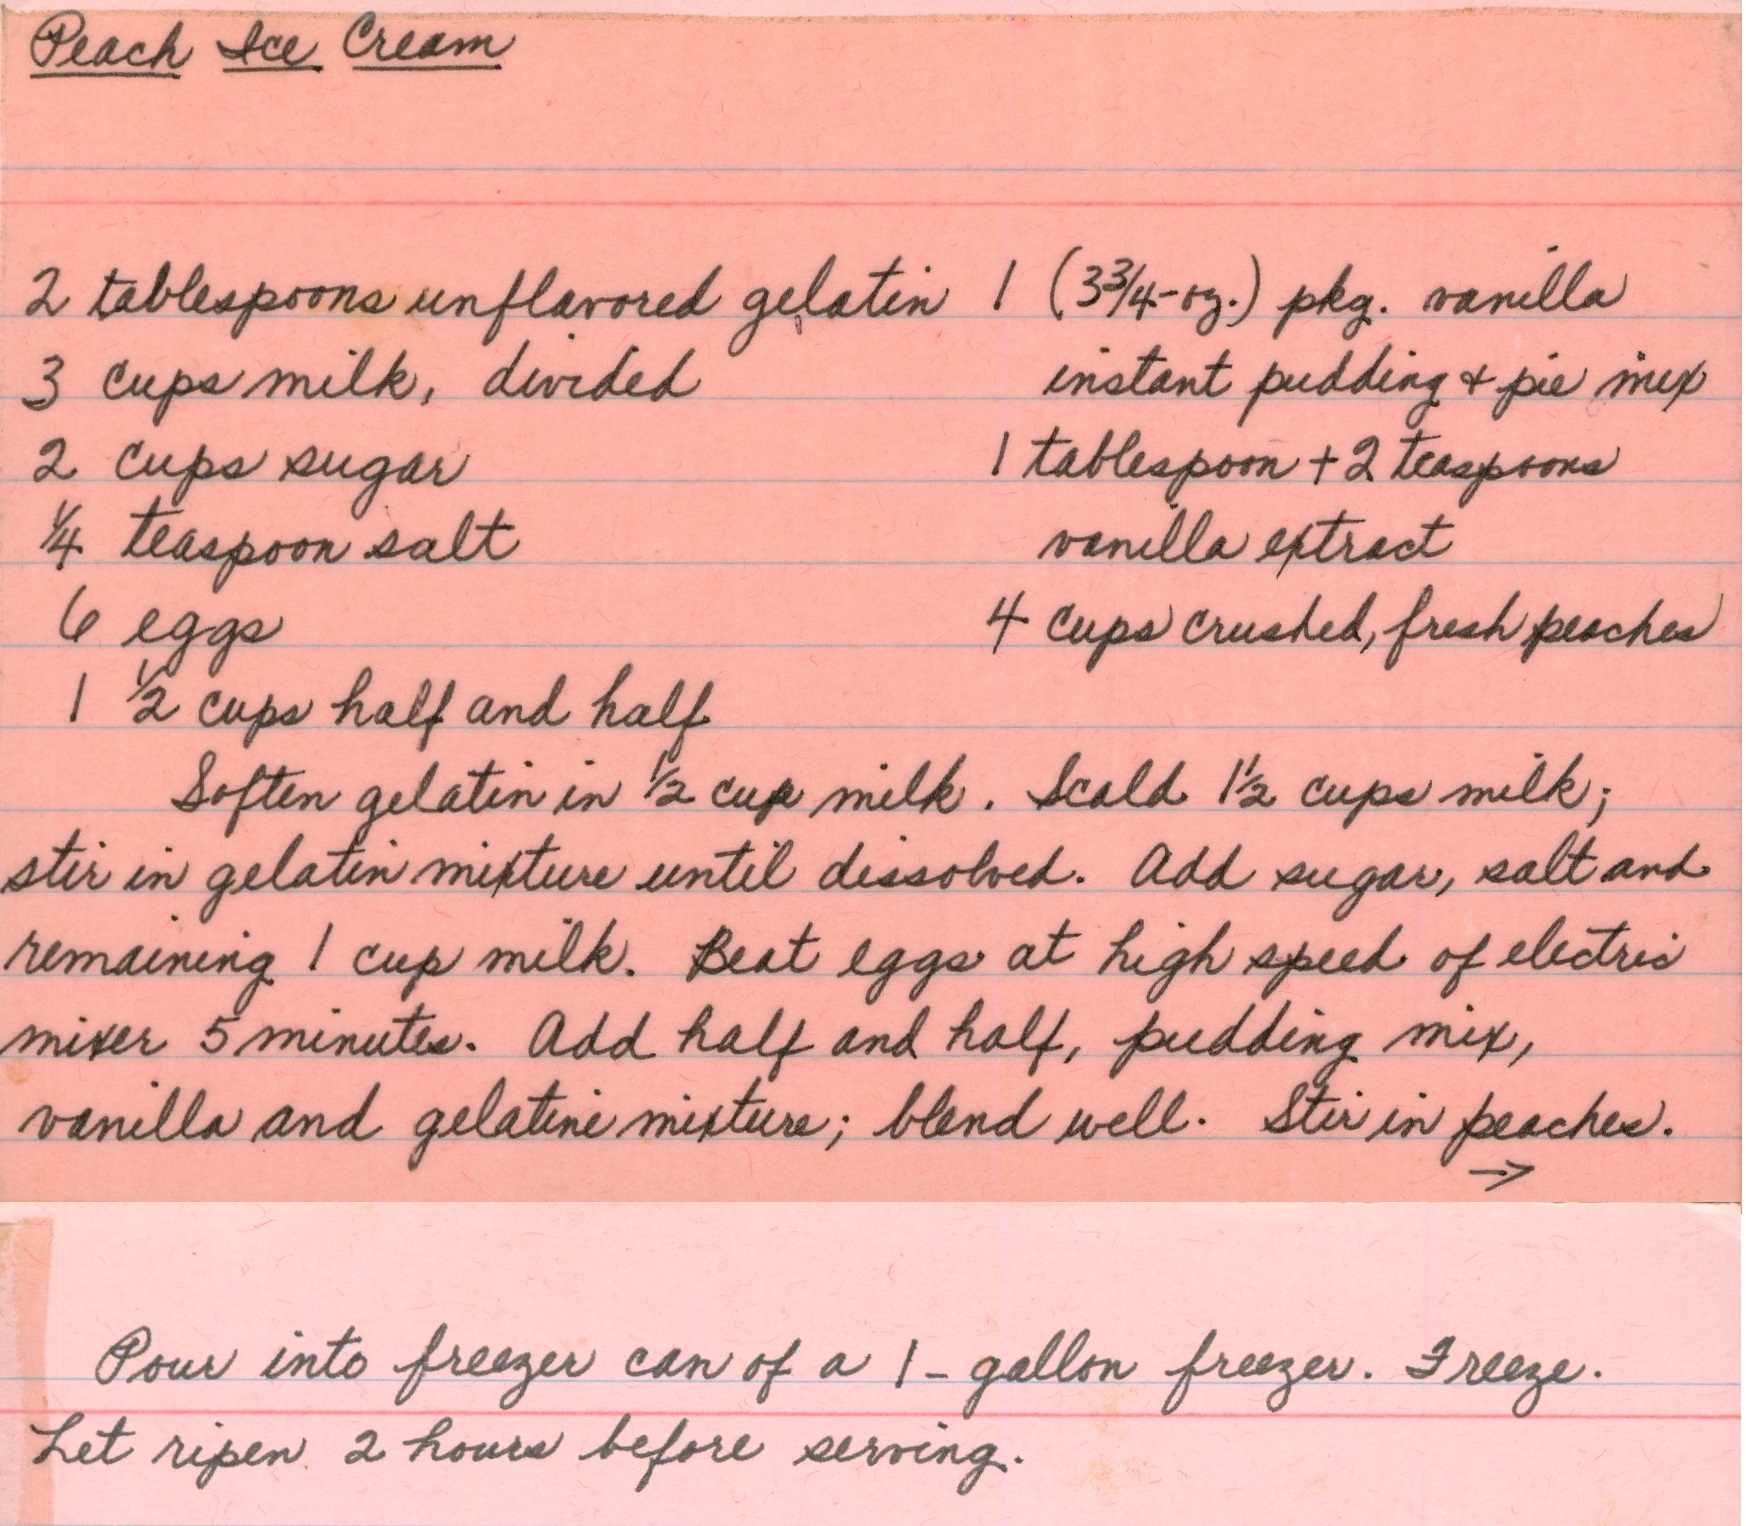 Peach Ice Cream
2 tablespoons unflavored gelatin
3 cups milk, divided
2 cups sugar
1/4 teaspoon salt
6 eggs
1 1/2 cups half and half
1 (3 3/4-oz.) pkg. vanilla
instant pudding & pie mix
1 tablespoon + 2 teaspoons
vanilla extract
4 cups crushed, fresh peaches
Soften gelatin in 1/2 cup milk. Scald 1 1/2 cups milk;
stir in gelatin mixture until dissolved. Add sugar, salt and
remaining 1 cup milk. Beat eggs at high speed of electric
mixer 5 minutes. Add half and half, pudding mix,
vanilla and gelatine mixture; blend well. Stir in peaches.
→
Pour into freezer can of a 1-gallon freezer. Freeze.
Let ripen 2 hours before serving.